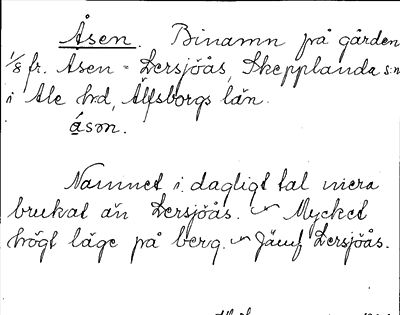 Åsen. Binamn på gården
1/8 fr. Åsen = Lersjöås, Skepplanda s:n
i Ale hd, Älfsborgs län.
åsm.
Namnet i dagligt tal mera
brukat än Lersjöås. ~ Mycket
högt läge på berg. ~ Jämf Lersjöås.